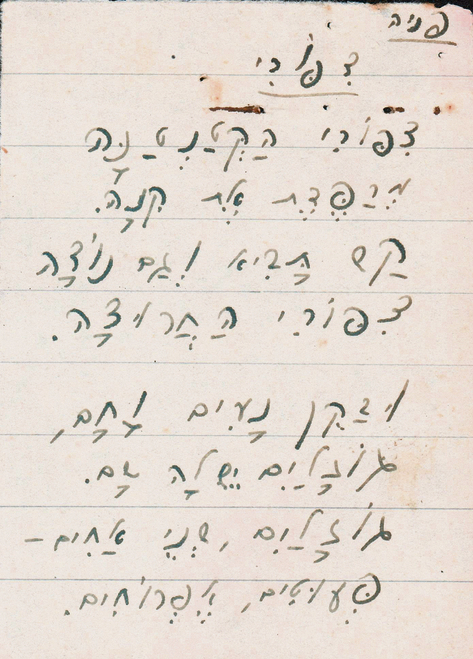 פניה
צִפּוֹרִי
צִפּוֹרִי הַקְּטַנְטַנָּה
מְרַפֶּדֶת אֶת קִנָּהּ.
קַשׁ תָּבִיא וְגַם נוֹצָה
צִפּוֹרִי הַחֲרוּצָה.
וּבַקֵּן נָעִים וָחָם,
גּוֹזָלַיִם יֵשׁ לָהּ שָׁם.
גּוֹזָלַיִם, שְׁנֵי אַחִים–
פָּעוּטִים, אֶפְרוֹחִים.